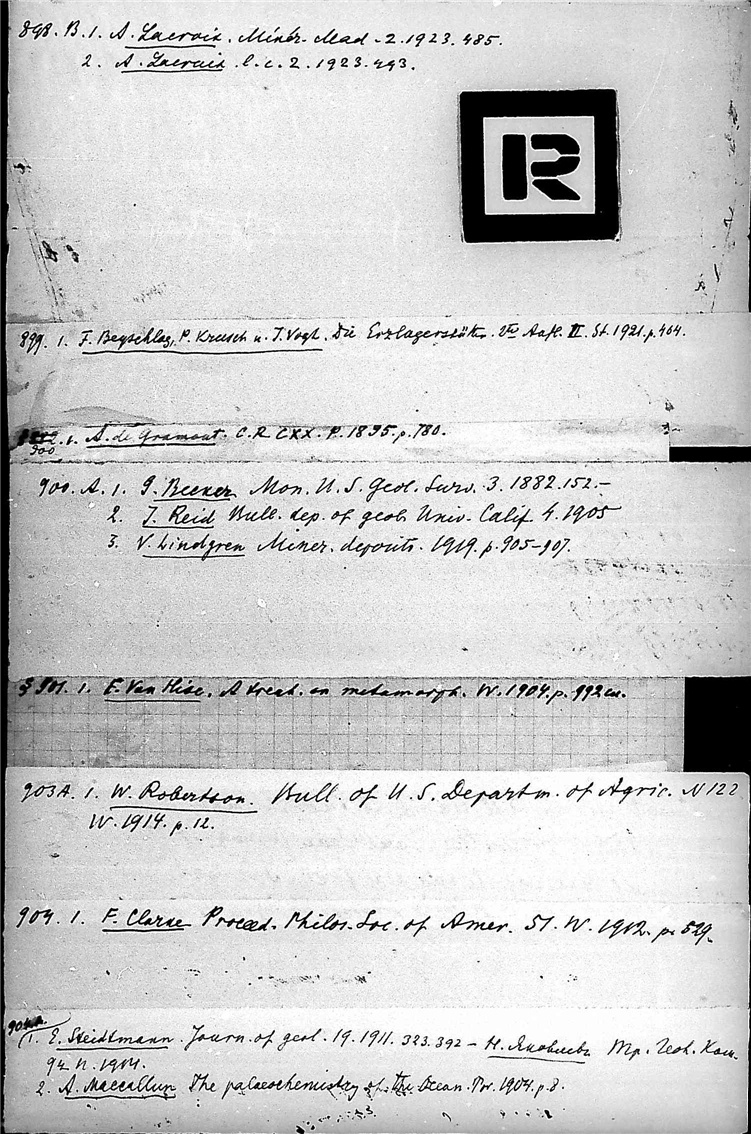 898. B. 1. A. Lacroix. Minér. Mad - 2. 1923. 485.
2. A. Lacroix l. c. 2. 1923. 493.
R
899. 1. F. Beyschlag, P. Krusch u. J. Vogt. Die Erzlagerstätt. 2te Aufl. II. St. 1921. p. 464.
1. A. de Gramont. C. R CXX. P. 1895. p. 780.
900
900. A. 1. G. Becker Mon. U. S. Geol. Surv. 3. 1882. 152.-
2. J. Reid Bull. dep. of geol. Univ. Calif. 4. 1905
3. V. Lindgren Miner. deposits. 1919. p. 905-907.
§ 901. 1. E. Van Hise. A treat. on metamorph. W. 1904. p. 992
903A. 1. W. Robertson. Bull. of U. S. Departm. of Agric. N 122
W. 1914. p. 12.
904. 1. F. Clarke Proceed. Philos. Soc. of Amer. 51. W. 1912. p. 529.
904A.
1. E. Steidtmann. Journ. of geol. 19. 1911. 323. 392 - Н. Яковлевъ Тр. Геол. Ком.
94 П. 1914.
2. A. Maccallum The palaeochemistry of the Ocean. Tor. 1904. p. 8.